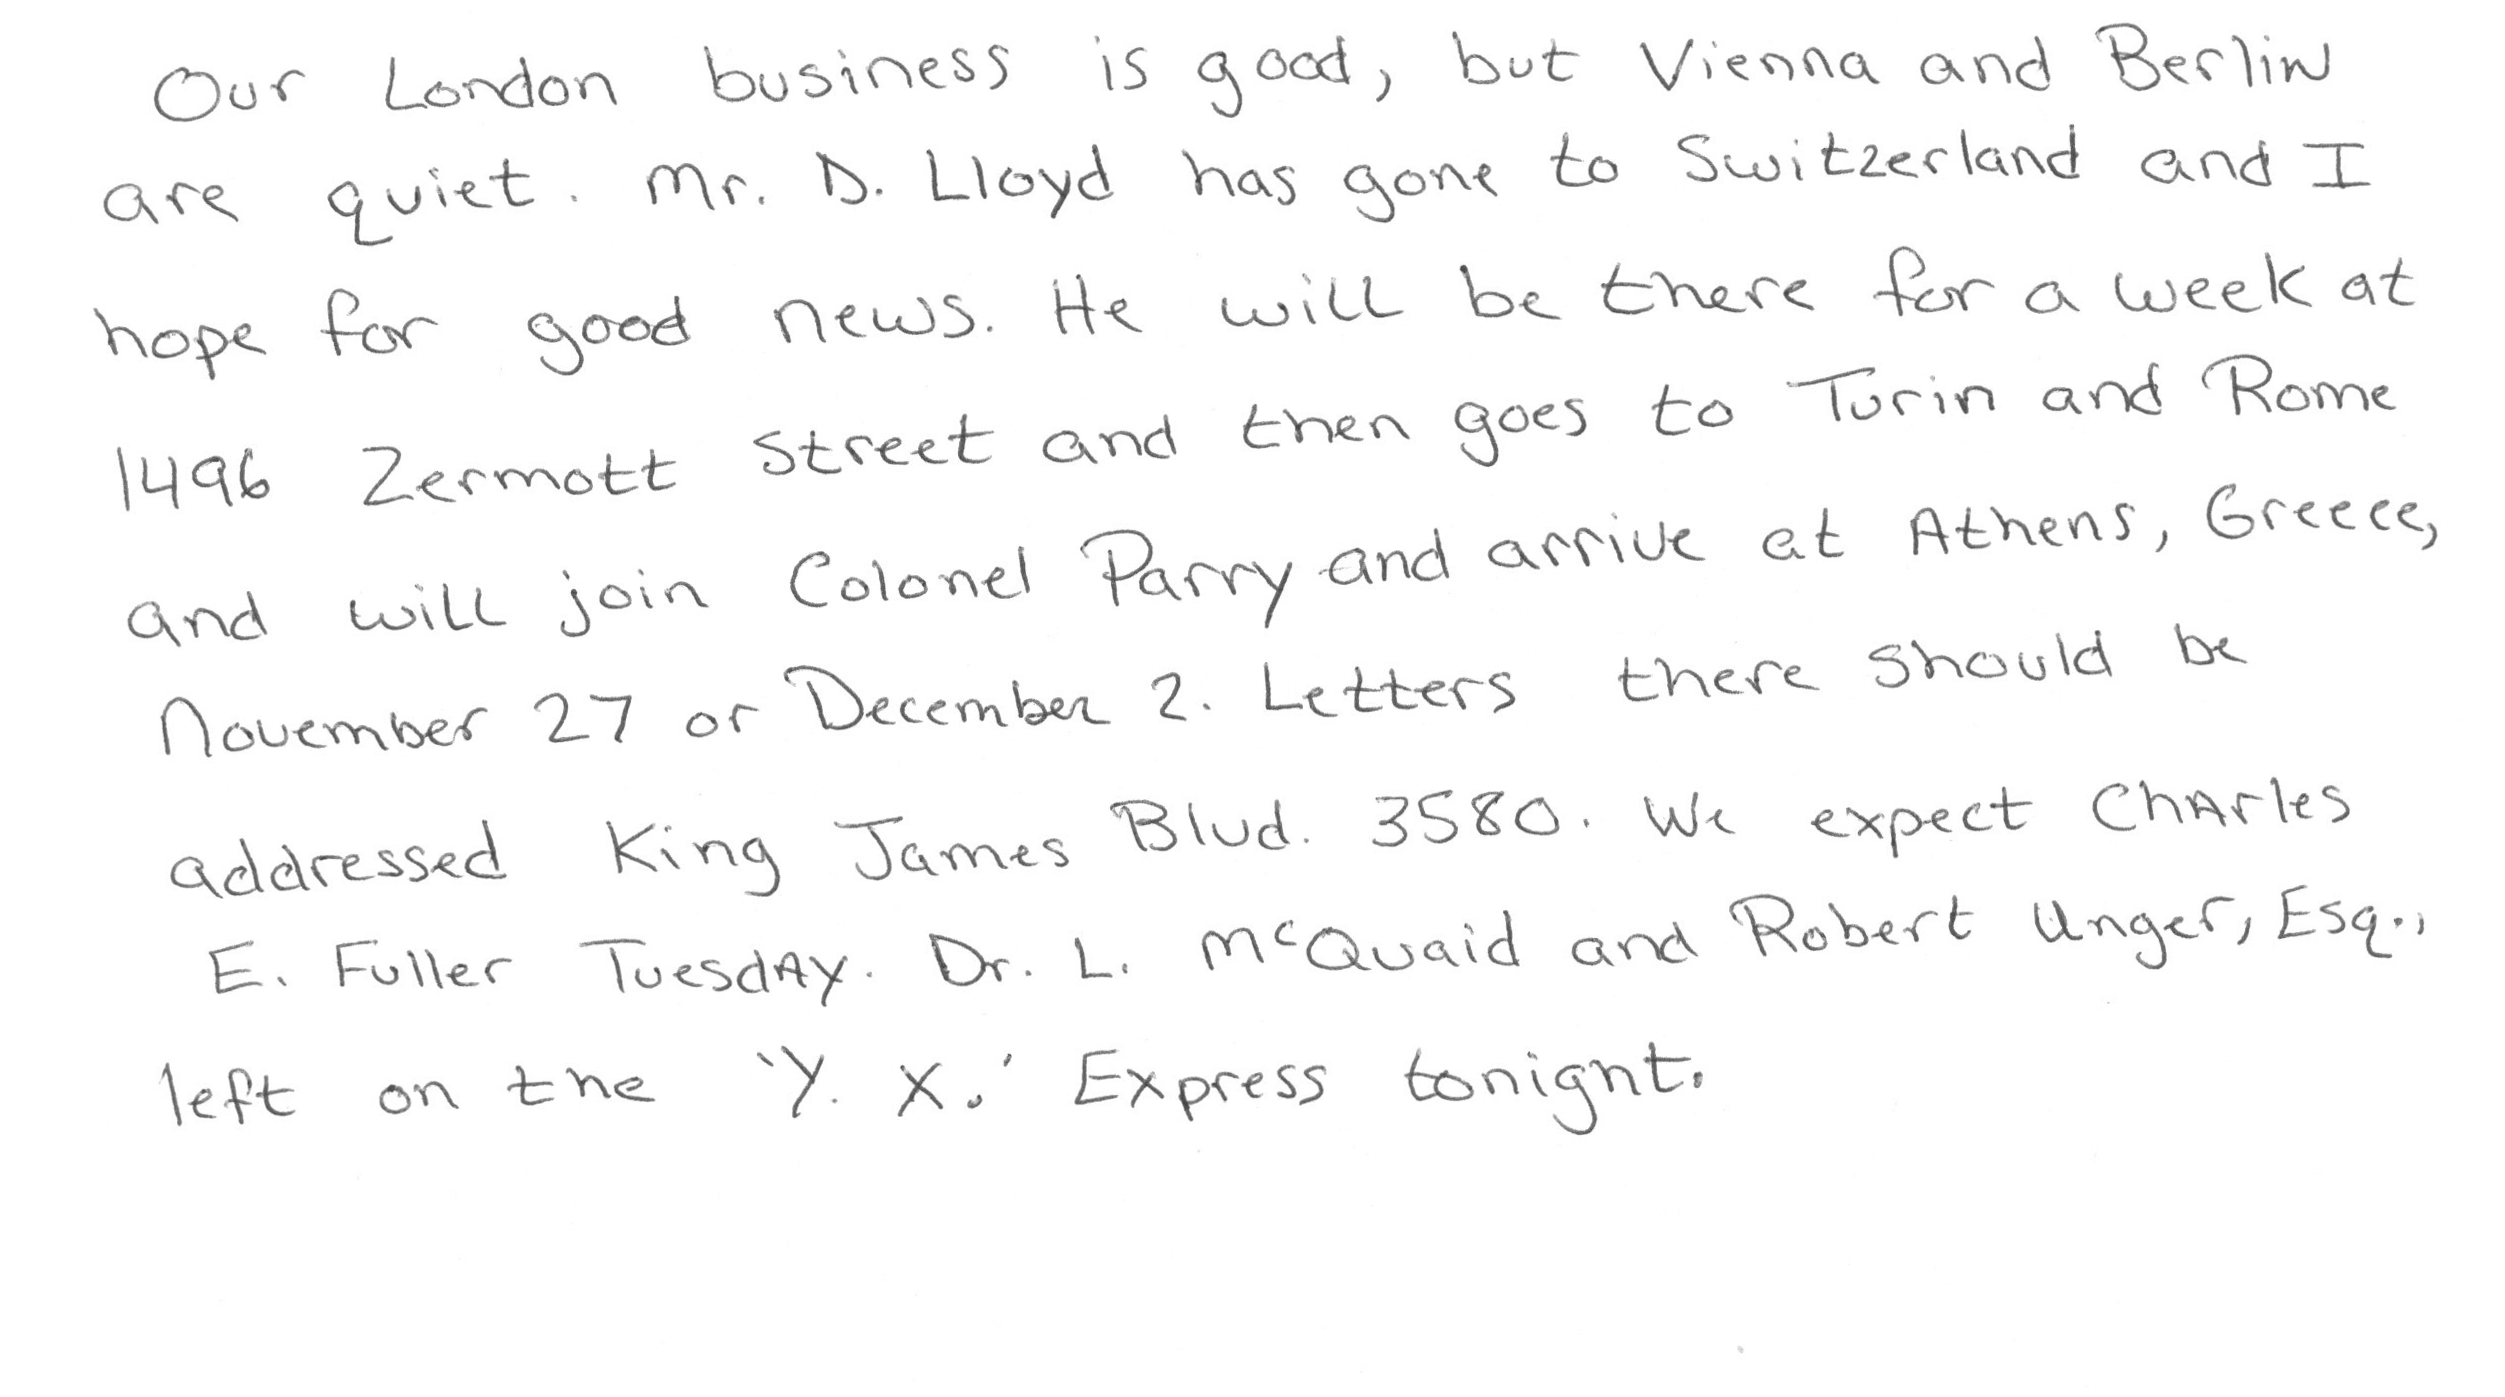 Our London business is good, but Vienna and Berlin
are quiet. Mr. D. Lloyd has gone to Switzerland and I
hope for good news. He will be there for a week at
1496 Zermott Street and then goes to Turin and Rome
and will join Colonel Parry and arrive at Athens, Greece,
November 27 or December 2. Letters there should be
addressed King James Blvd. 3580. We expect Charles
E. Fuller Tuesday. Dr. L. McQuaid and Robert Unger, Esq.,
left on the 'Y. X.' Express tonight.